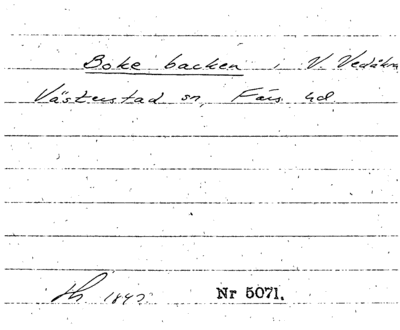 Boke backen, V. Vedåkra
Västerstad sn, Färs hd
1893
Nr 5071.